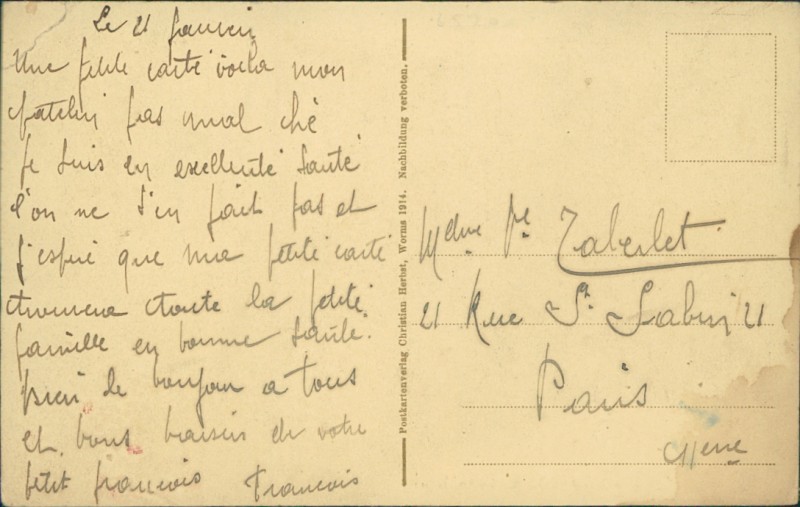 Le 21 Janvier
Une petite carte voila mon
patelin pas mal ché
je suis en exellente santé
l'on ne s'en fait pas et
j'espere que ma petite carte
trouvera toute la petite
famille en bonne santé.
bien le bonjour a tous
et bons baisers de votre
petit francois Francois
Postkartenverlag Christian Herbst, Worms 1914. Nachbildung verboten.
Mdme Taberlet
21 Rue St Sabin 21
Paris
11eme